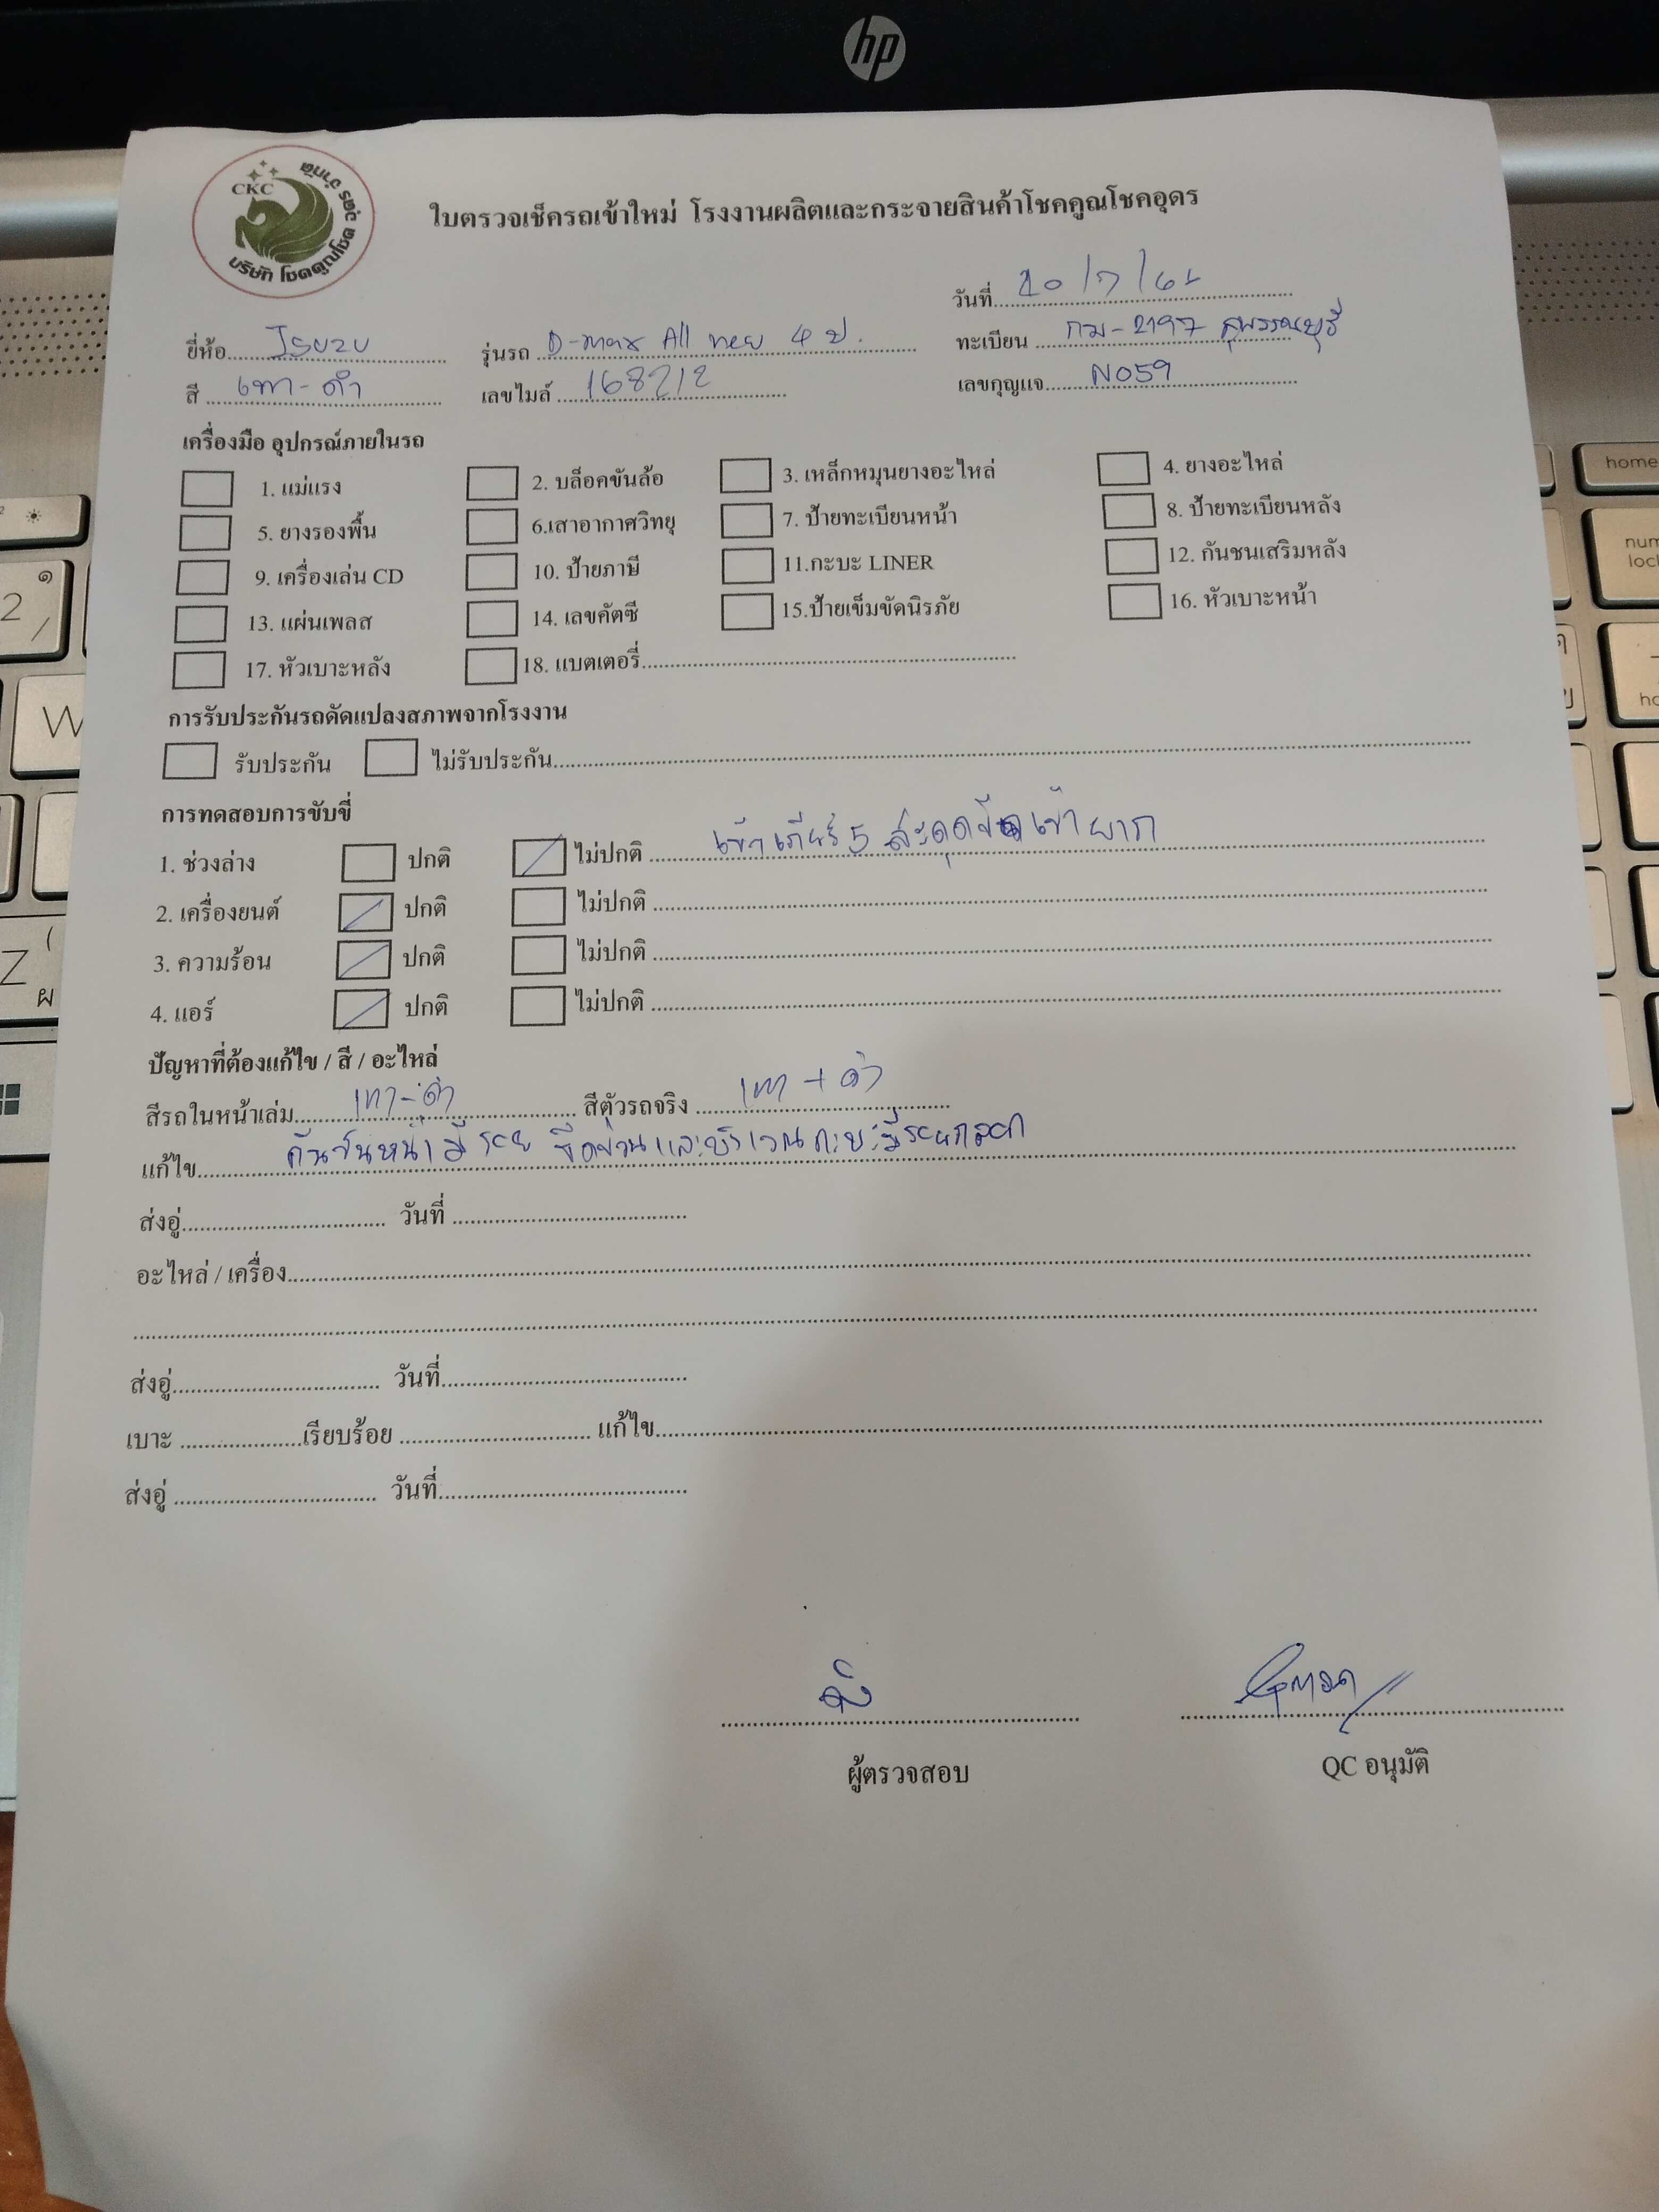 hp
CKC
บริษัท โชคคูณโชค อุดร จำกัด
ใบตรวจเช็ครถเข้าใหม่ โรงงานผลิตและกระจายสินค้าโชคคูณโชคอุดร
วันที่ 20/7/6
ยี่ห้อ Isuzu รุ่นรถ D-max All new 4 ป. ทะเบียน กม-2197 สุพรรณบุรี
สี เทา-ดำ เลขไมล์ 168212 เลขกุญแจ N059
เครื่องมือ อุปกรณ์ภายในรถ
1. แม่แรง 2. บล็อคขันล้อ 3. เหล็กหมุนยางอะไหล่ 4. ยางอะไหล่
5. ยางรองพื้น 6.เสาอากาศวิทยุ 7. ป้ายทะเบียนหน้า 8. ป้ายทะเบียนหลัง
9. เครื่องเล่น CD 10. ป้ายภาษี 11.กะบะ LINER 12. กันชนเสริมหลัง
13. แผ่นเพลส 14. เลขคัตซี 15.ป้ายเข็มขัดนิรภัย 16. หัวเบาะหน้า
17. หัวเบาะหลัง 18. แบตเตอรี่
การรับประกันรถดัดแปลงสภาพจากโรงงาน
รับประกัน ไม่รับประกัน
การทดสอบการขับขี่
1. ช่วงล่าง ปกติ ไม่ปกติ เข้าเกียร์ 5 สะดุด เข้ายาก
2. เครื่องยนต์ ปกติ ไม่ปกติ
3. ความร้อน ปกติ ไม่ปกติ
4. แอร์ ปกติ ไม่ปกติ
ปัญหาที่ต้องแก้ไข / สี / อะไหล่
สีรถในหน้าเล่ม เทา-ดำ สีตัวรถจริง เทา + ดำ
แก้ไข กันชนหน้ามีรอย ขีดข่วนและบริเวณกะบะมีรอยถลอก
ส่งอู่ วันที่
อะไหล่ / เครื่อง
ส่งอู่ วันที่
เบาะ เรียบร้อย แก้ไข
ส่งอู่ วันที่
ผู้ตรวจสอบ QC อนุมัติ
home
num lock
2
W
Z
ผ